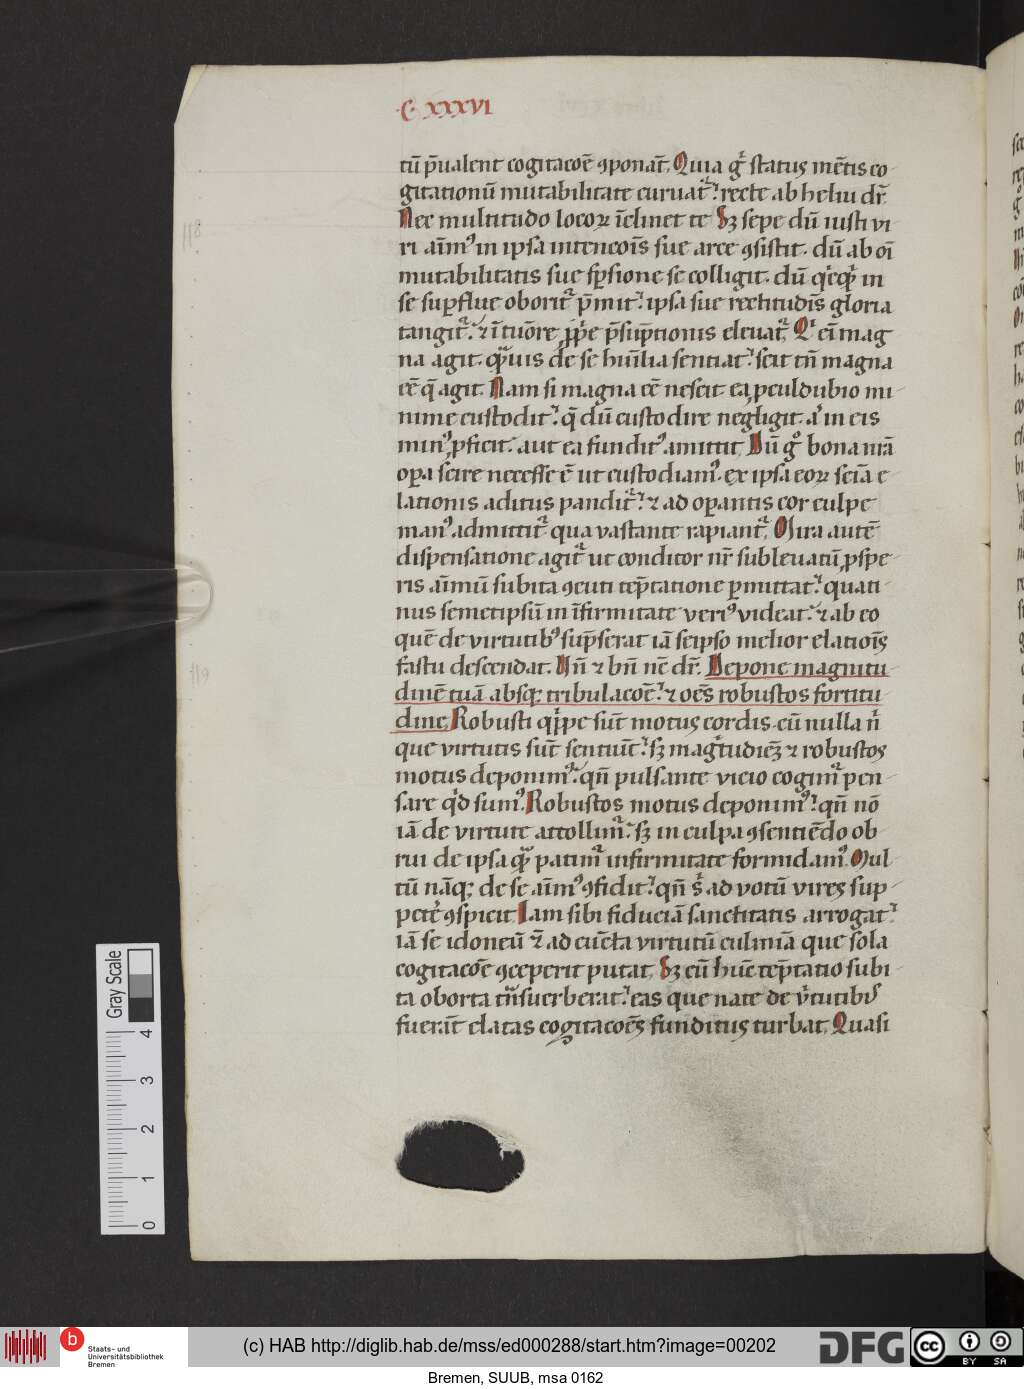 C XXXVI
tū p̄ualent cogitacōē ꝯponat̄. Quia gͥ status mētis co-
gitationū mutabilitate curuatᷣ. recte ab heliu dr̄.
Nec multitudo locoꝝ īclinet te Sꝫ sepe dū iusti vi
ri aīmꝰ in ipsa intencoīs sue arce ꝯsistit. dū ab oī
mutabilitatis sue sꝑsione se colligit. dū in
se suꝑflue oboritᷣ p̄mit. ipsa sue rectitudīs gloria
tangitᷣ. ⁊ p̄supt̄ionis eleuatᷣ. eī mag
na agit. qͣuis de se huīlia sentiat. scit tn̄ magna
eē q̄ agit. Nam si magna eē nescit ea ꝓculdubio mi-
nime custodit. q̄ dū custodire negligit. aͭ in eis
minꝰ ꝓficit. aut ea funditꝰ amittit. Dū gͦ bona nr̄a
oꝑa scire necesse ē ut custodiamꝰ. ex ipsa eoꝝ scīa e
lationis aditus panditᷣ. ⁊ ad oꝑantis cor culpe
manꝰ admittitᷣ qua vastante rapiantᷣ. Mira autē
dispensatione agitᷣ ut conditor nr̄ subleuatū ꝓspe-
ris aīmū subita ꝯcuti tēp̄tatione ꝑmittat. quati
nus semetipsū in īfirmitate veriꝰ videat. ⁊ ab eo
quē de virtutibꝰ sūpserat iā seipso melior elatioīs
fastu descendat. Vn̄ ⁊ bn̄ nē dr̄. Depone magnitu
dinē tuā absqꝫ tribulacōē. ⁊ oēs robustos fortitu
dine. Robusti qͥppe sūt motus cordis. cū nulla nͥ
que virtutis sūt sentiūt. sꝫ magͥtudiēꝫ ⁊ robustos
motus deponimꝰ. qn̄ pulsante vicio cogimᷣ pen-
sare qͥd sumꝰ. Robustos motus deponimꝰ. qn̄ nō
iā de virtute attollimᷣ. sꝫ in culpa ꝯsentiēdo ob
rui de ipsa qͣ patimᷣ infirmitate formidamꝰ. Mul
tū nāqꝫ de se aīmꝰ ꝯfidit. qn̄ sͥ ad votū vires sup-
petēͤ ꝯspicit. Iam sibi fiduciā sanctitatis arrogat.
iā se idoneū ⁊ ad cūcta virtutū culmīa que sola
cogitacōē ꝯceperit putat. Sꝫ cū hūc tēp̄tatio subi
ta oborta tn̄suerberat. eas que nate de v̄tutibꝰ
fuerāt elatas cogitacoēs funditus turbat. Quasi
118
119
Gray Scale
4
3
2
1
0
b
Staats- und
Universitätsbibliothek
Bremen
(c) HAB http://diglib.hab.de/mss/ed000288/start.htm?image=00202
DFG
cc
BY SA
Bremen, SUUB, msa 0162